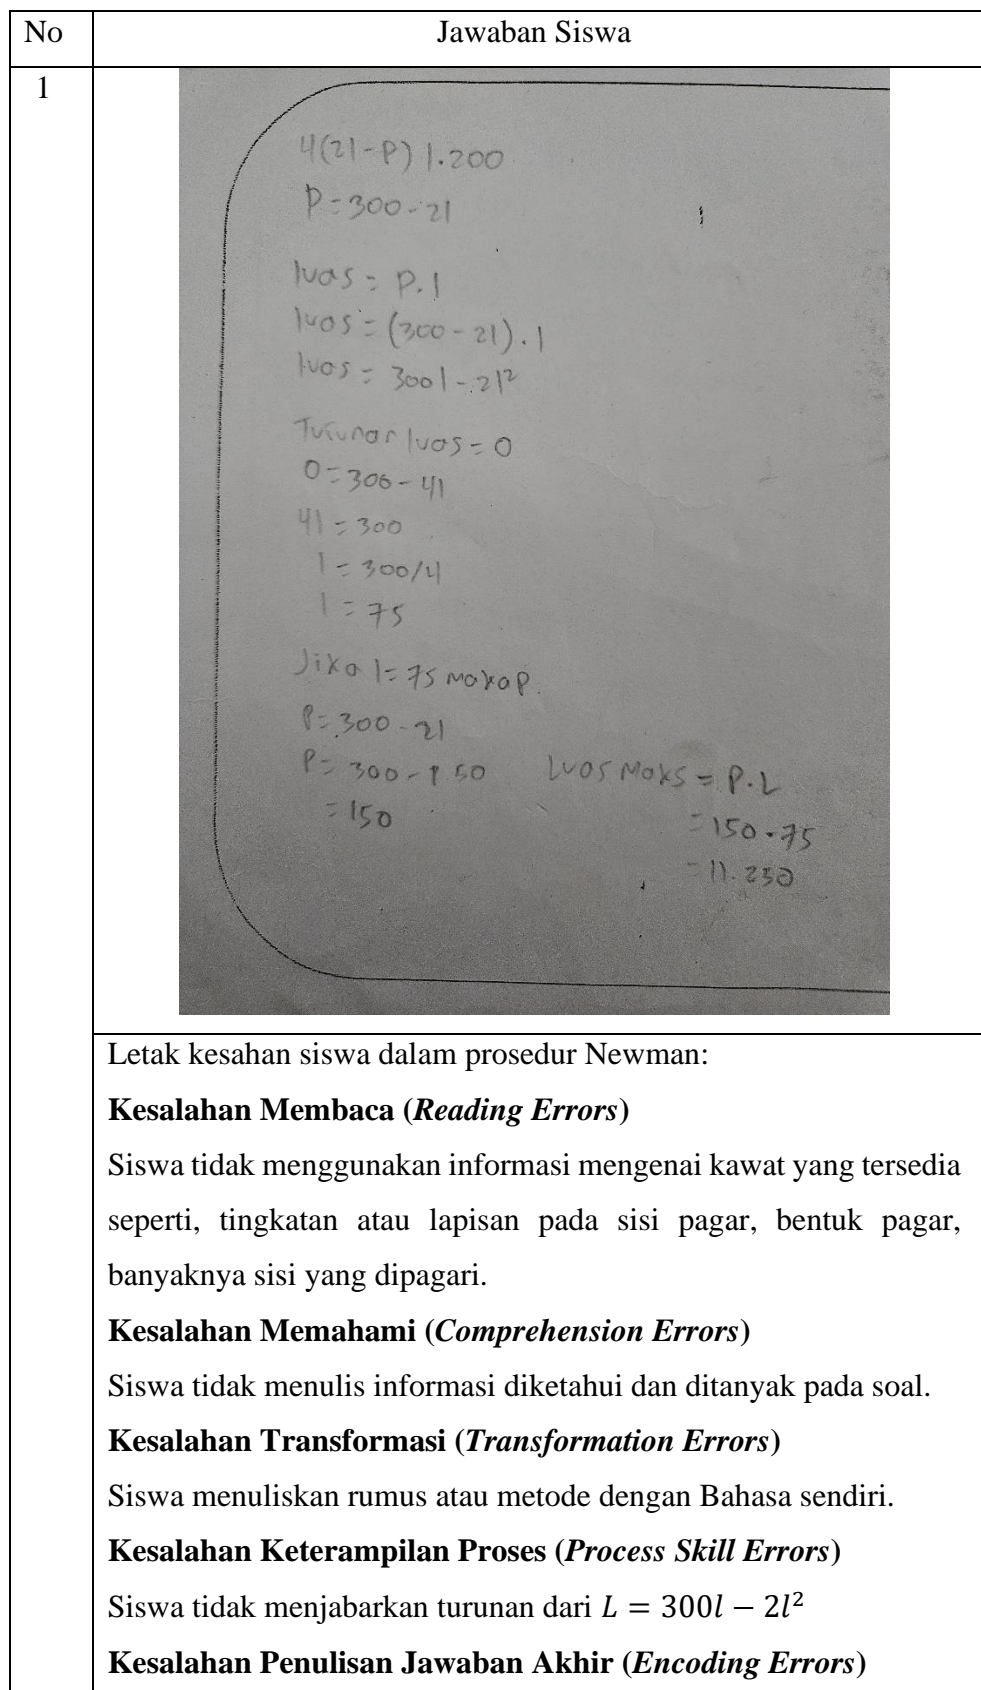 No Jawaban Siswa
1
4(2l-P) 1.200
P=300-2l
luas = P.l
luas = (300-2l).l
luas = 300l-2l²
Turunan luas=0
0=300-4l
4l=300
l=300/4
l=75
Jika l=75 maka P.
P=300-2l
P=300-150
=150
Luas Maks = P.L
=150.75
=11.250
Letak kesahan siswa dalam prosedur Newman:
Kesalahan Membaca (Reading Errors)
Siswa tidak menggunakan informasi mengenai kawat yang tersedia
seperti, tingkatan atau lapisan pada sisi pagar, bentuk pagar,
banyaknya sisi yang dipagari.
Kesalahan Memahami (Comprehension Errors)
Siswa tidak menulis informasi diketahui dan ditanyak pada soal.
Kesalahan Transformasi (Transformation Errors)
Siswa menuliskan rumus atau metode dengan Bahasa sendiri.
Kesalahan Keterampilan Proses (Process Skill Errors)
Siswa tidak menjabarkan turunan dari L = 300l − 2l²
Kesalahan Penulisan Jawaban Akhir (Encoding Errors)